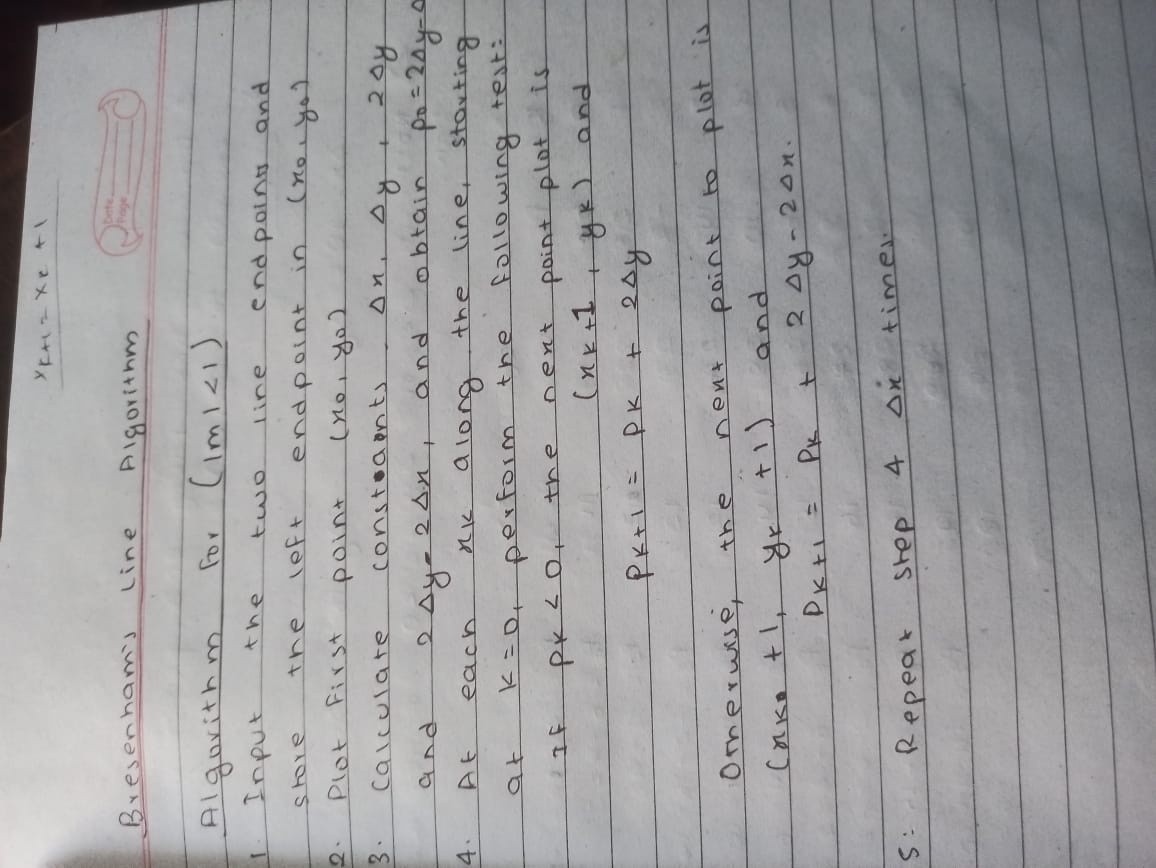 xk+1 = xk +1
Date
Page
Bresenham's Line Algorithm
Algorithm for (|m|<1)
1. Input the two line endpoints and
store the left endpoint in (x0, y0)
2. Plot first point (x0, y0)
3. Calculate constants Δx, Δy, 2Δy
and 2Δy-2Δx, and obtain p0=2Δy-Δ
4. At each xk along the line, starting
at k=0, perform the following test:
If pk<0, the next point plot is
(xk+1, yk) and
pk+1 = pk + 2Δy
Otherwise, the next point to plot is
(xk+1, yk+1) and
pk+1 = pk + 2Δy-2Δx.
5: Repeat step 4 Δx times.